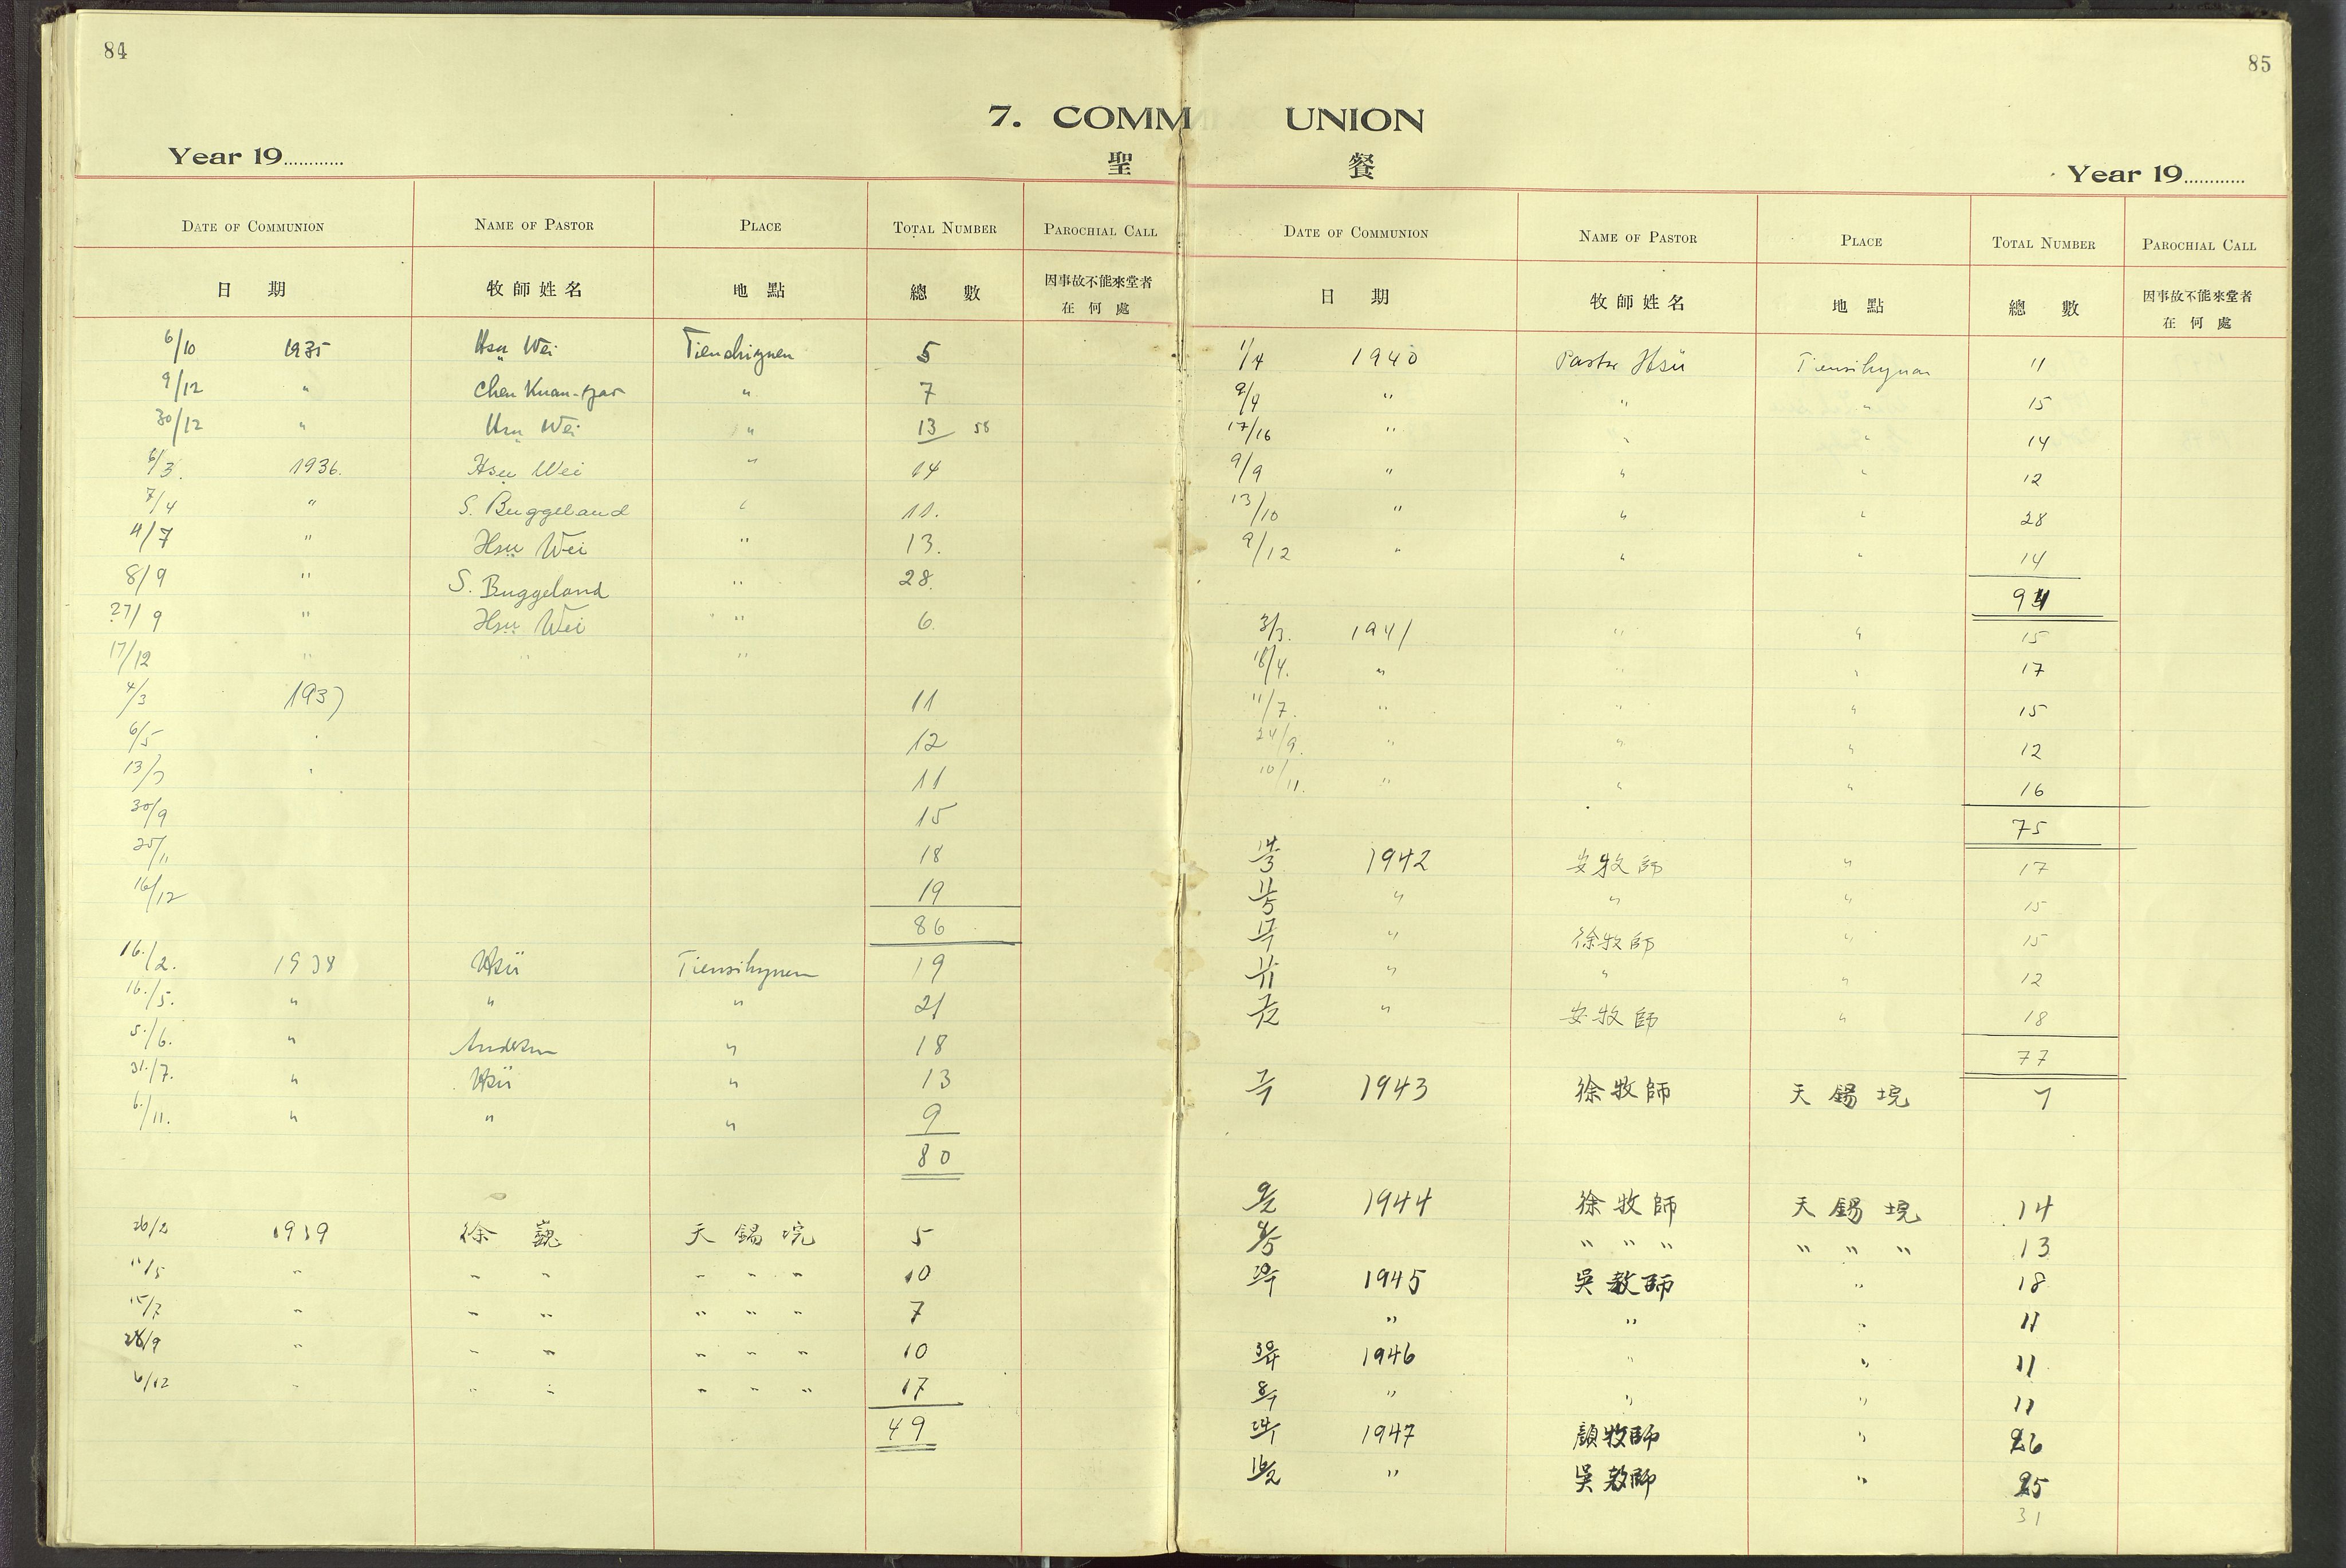 84
7. COMM
Year 19............
聖
DATE OF COMMUNION NAME OF PASTOR PLACE TOTAL NUMBER PAROCHIAL CALL
日 期 牧師姓名 地 點 總 數 因事故不能來堂者
在 何 處
6/10 1935 Hsu Wei 5
9/12 " " 7
30/12 " Hsu Wei " 13 58
6/3. 1936. Hsu Wei " 14
7/4 " S. Buggeland " 11.
4/7 " Hsu Wei " 13.
8/9 " S. Buggeland " 28.
27/9 " Hsu Wei " 6.
17/12 " " "
4/3 1937 11
6/5 " 12
13/7 " 11
30/9 15
25/11 18
16/12 19
86
16./2. 1938 Hsü Tiensihynen 19
16./5. " " " 21
5./6. " " 18
31./7. " Hsü " 13
6./11. " " " 9
80
26/2 1939 徐 巍 天 錫 垸 5
11/5 " " " " " " 10
15/7 " " " " " " 7
28/9 " " " " " " 10
6/12 " " " " " " 17
49
85
UNION
Year 19............
餐
DATE OF COMMUNION NAME OF PASTOR PLACE TOTAL NUMBER PAROCHIAL CALL
日 期 牧師姓名 地 點 總 數 因事故不能來堂者
在 何 處
1/4 1940 Pastor Hsü Tiensihynen 11
9/4 " " " 15
" " " 14
9/9 " " " 12
13/10 " " " 28
9/12 " " " 14
94
3/3. 1941 " " 15
18/4. " " " 17
11/7. " " " 15
24/9. " " " 12
10/11. " " " 16
75
14/3 1942 安牧師 " 17
11/5 " " " 15
17/7 " 徐牧師 " 15
11/11 " " " 12
7/12 " 安牧師 " 18
77
1943 徐牧師 天 錫 垸 7
9/2 1944 徐牧師 天 錫 垸 14
" " " " " " 13
1945 吳教師 " 18
" " " 11
30/4 1946 " " 11
" " " 11
1947 顏牧師 " 26
16/2 " 吳教師 " 25
31